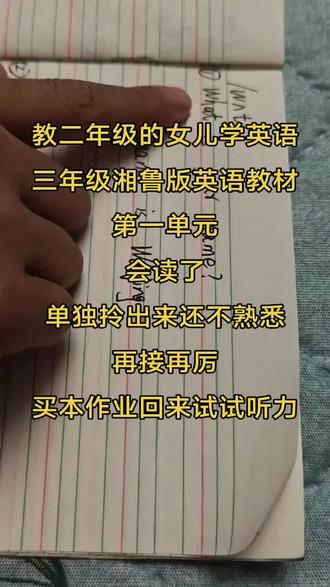 教二年级的女儿学英语
三年级湘鲁版英语教材
第一单元
会读了
单独拎出来还不熟悉
再接再厉
买本作业回来试试听力
① What ame?
is
②